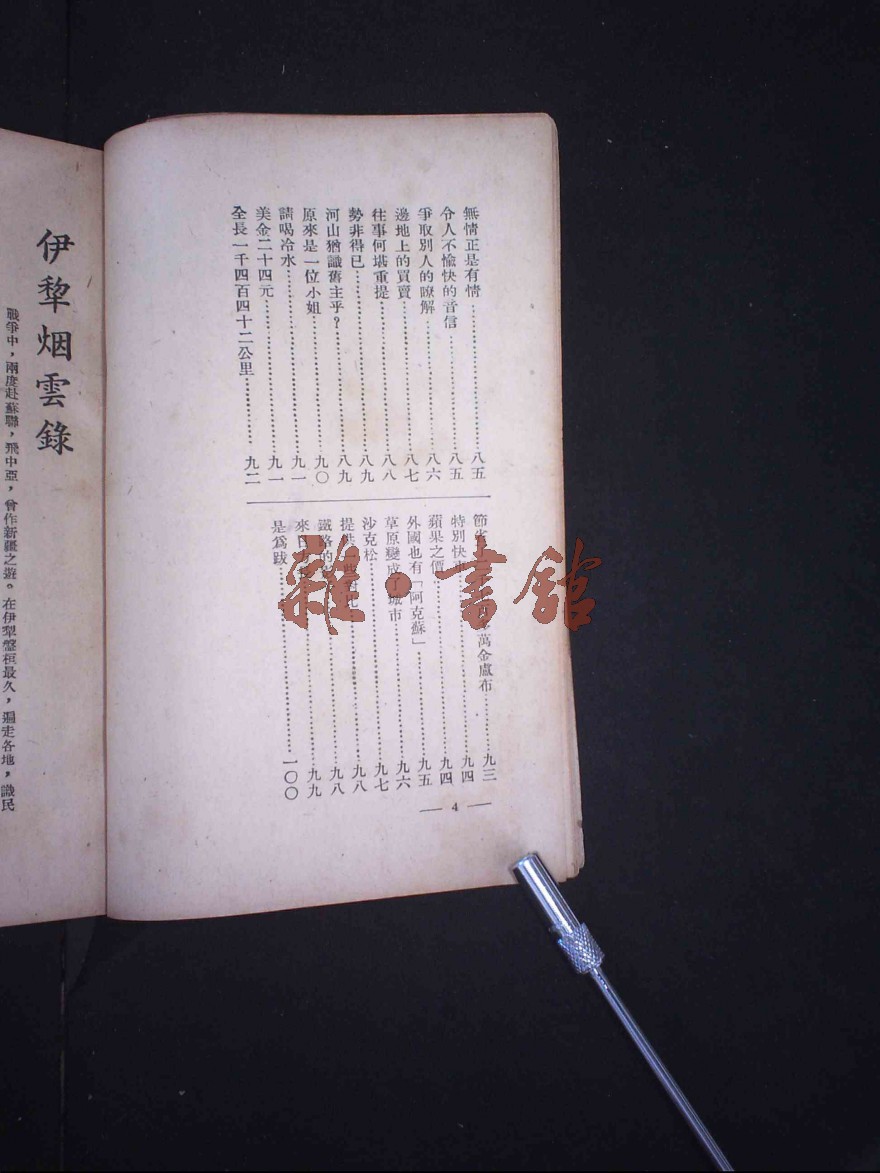 無情正是有情……八五
令人不愉快的音信……八五
爭取別人的瞭解……八六
邊地上的買賣……八七
往事何堪重提……八八
勢非得已……八九
河山猶識舊主乎？……八九
原來是一位小姐……九〇
請喝冷水……九一
美金二十四元……九一
全長一千四百四十二公里……九二
節省 萬金盧布……九三
特別快車……九四
蘋果之價……九四
外國也有「阿克蘇」……九五
草原變成了城市……九六
沙克松……九七
提供……九八
鐵路的……九八
來自……九九
是爲跋……一〇〇
— 4 —
伊犂烟雲錄
戰爭中，兩度赴蘇聯，飛中亞，曾作新疆之遊。在伊犂盤桓最久，遍走各地，識民
雜·書館